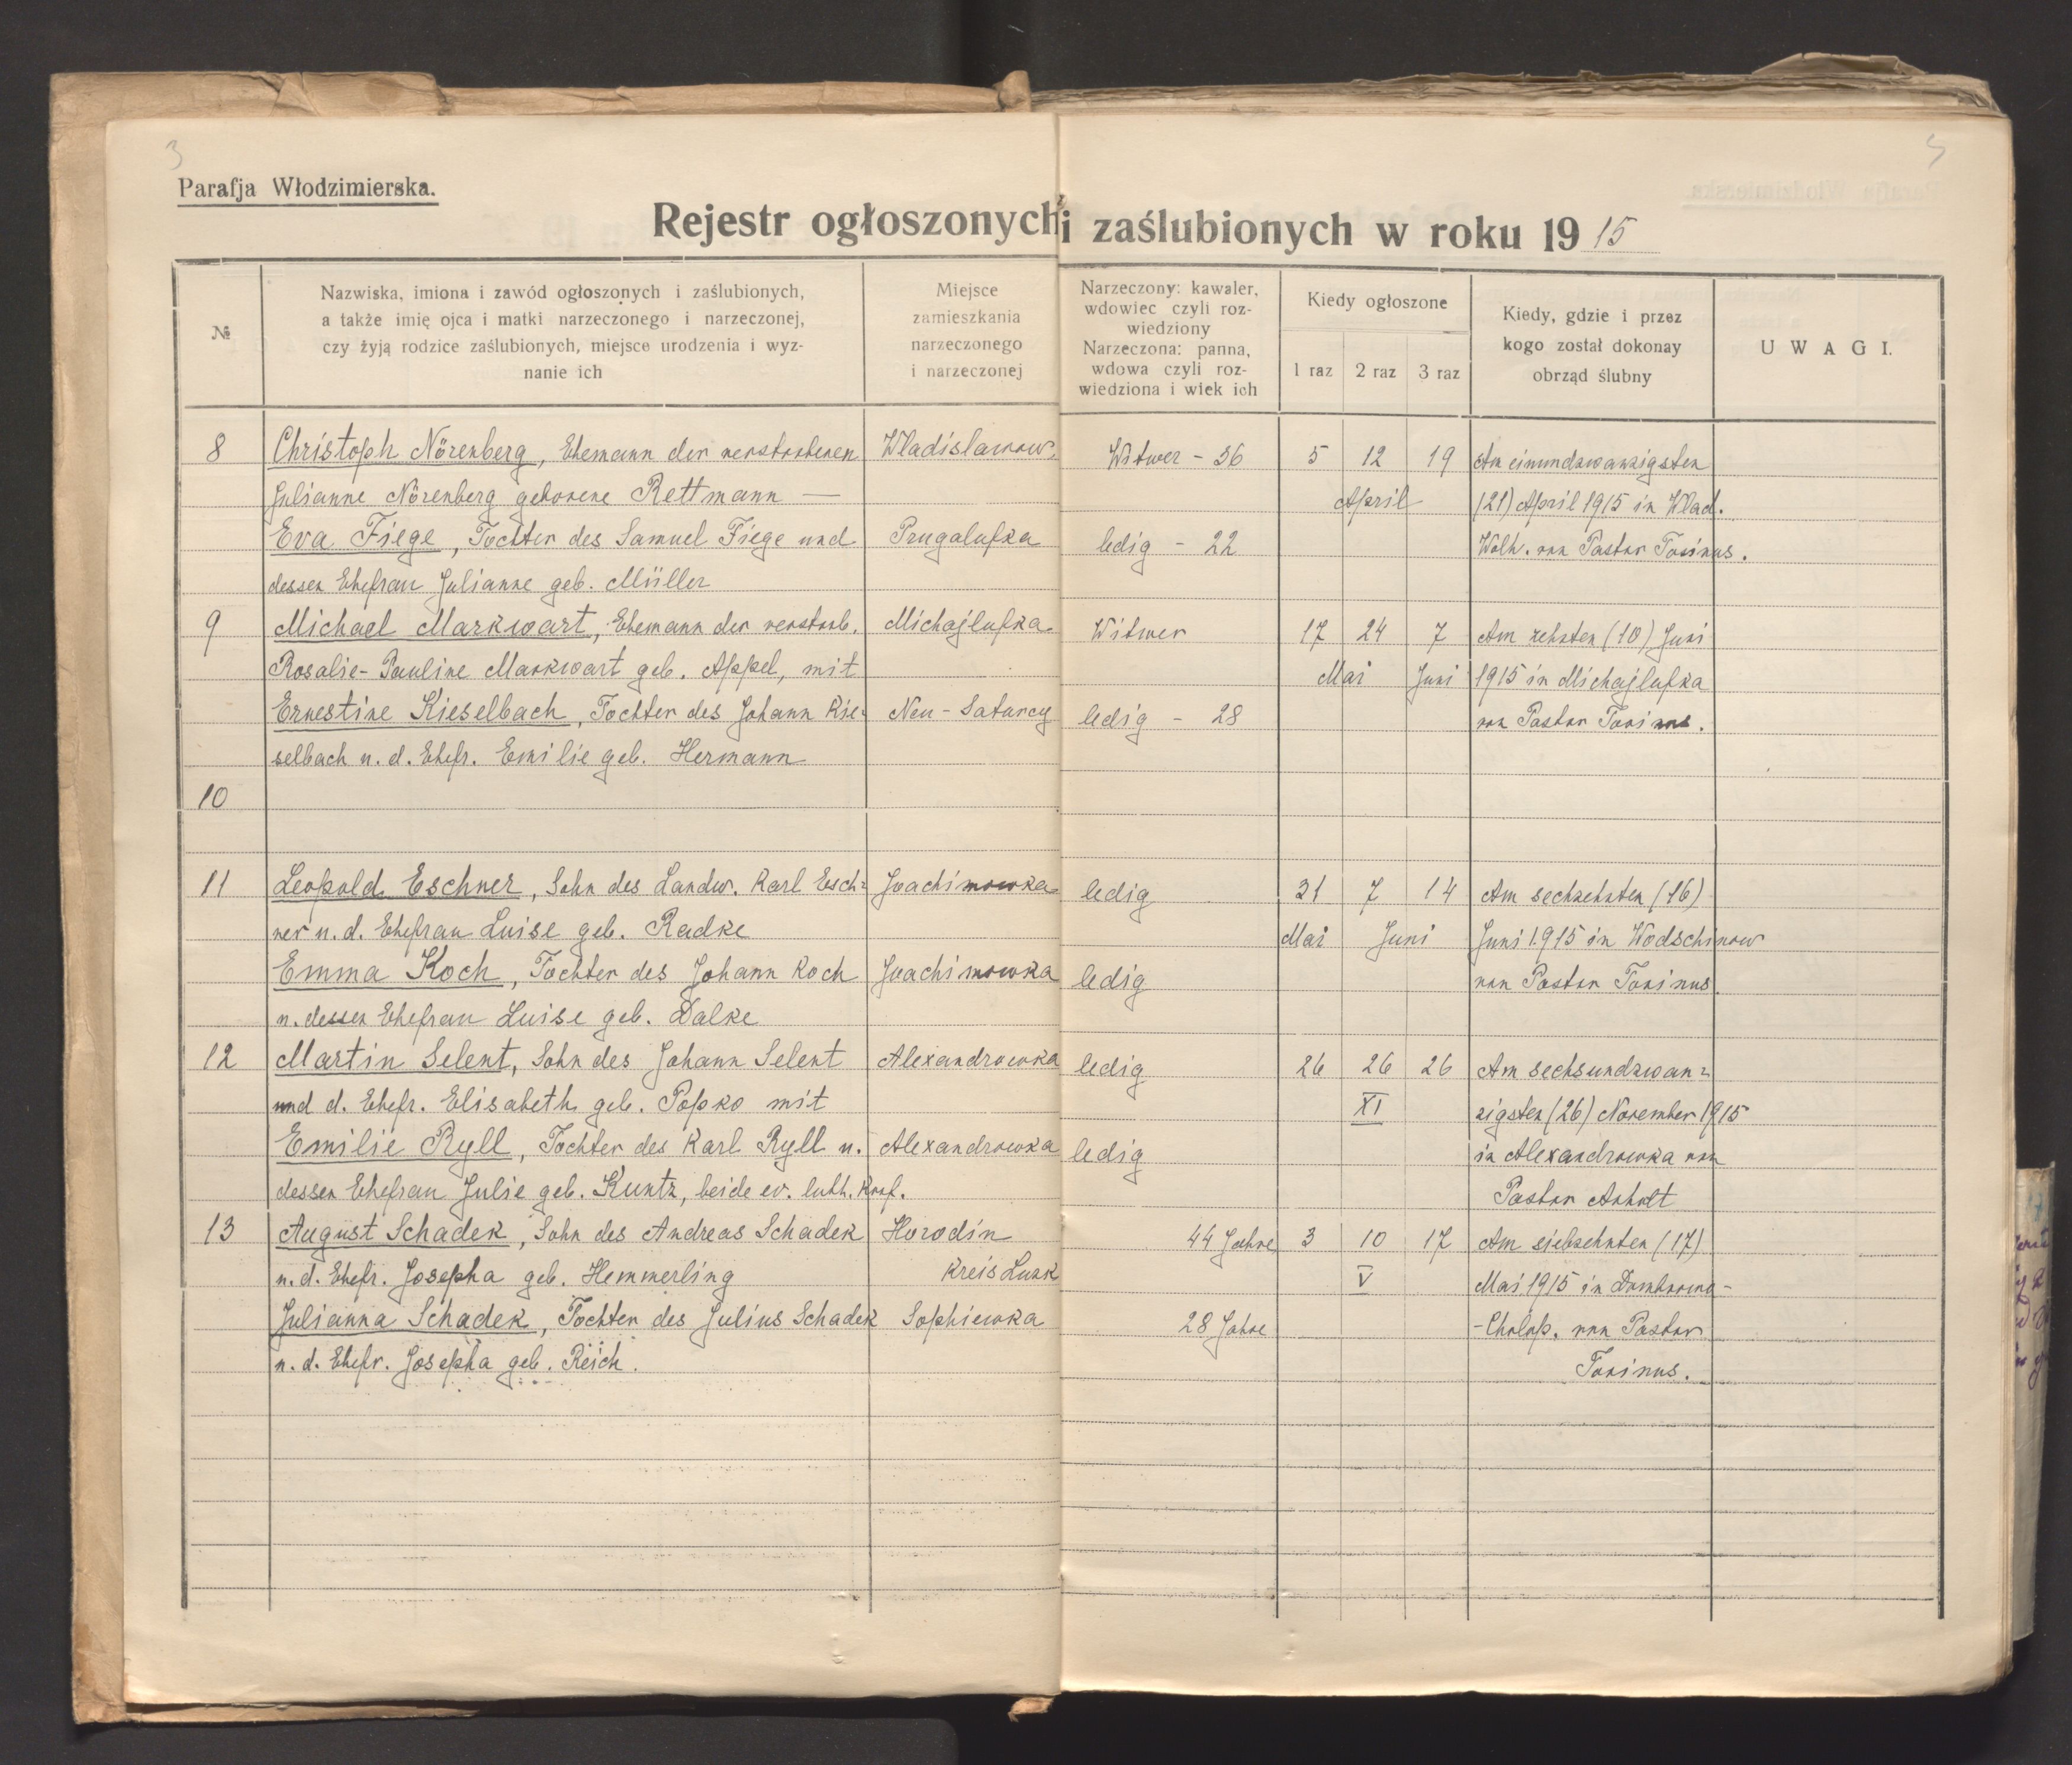 3
5
Parafja Włodzimierska.
Rejestr ogłoszonych i zaślubionych w roku 1915
№
Nazwiska, imiona i zawód ogłoszonych i zaślubionych,
a także imię ojca i matki narzeczonego i narzeczonej,
czy żyją rodzice zaślubionych, miejsce urodzenia i wyz-
nanie ich
Miejsce
zamieszkania
narzeczonego
i narzeczonej
Narzeczony: kawaler,
wdowiec czyli roz-
wiedziony
Narzeczona: panna,
wdowa czyli roz-
wiedziona i wiek ich
Kiedy ogłoszone
1 raz 2 raz 3 raz
Kiedy, gdzie i przez
kogo został dokonay
obrząd ślubny
UWAGI.
8 Christoph Nörenberg, Ehemann der verstorbenen Wladislawow. Witwer - 36 5 12 19 Am einundzwanzigsten
Julianne Nörenberg geborene Rettmann — April (21) April 1915 in Wlad.
Eva Fiege, Tochter des Samuel Fiege und Prugalufka ledig - 22 Wolh. von Pastor Torinus.
dessen Ehefrau Julianne geb. Müller
9 Michael Markwart, Ehemann der verstorb. Michajlufka Witwer 17 24 7 Am zehnten (10) Juni
Rosalie-Pauline Markwart geb. Appel, mit Mai Juni 1915 in Michajlufka
Ernestine Kieselbach, Tochter des Johann Kie- Neu-Saturcy ledig - 28 von Pastor Torinus.
selbach u. d. Ehefr. Emilie geb. Hermann
10
11 Leopold Eschner, Sohn des Landw. Karl Esch- Joachimowka ledig 31 7 14 Am sechzehnten (16)
ner u. d. Ehefrau Luise geb. Radke Mai Juni Juni 1915 in Wodschinow
Emma Koch, Tochter des Johann Koch Joachimowka ledig von Pastor Torinus
u. dessen Ehefrau Luise geb. Dalke
12 Martin Selent, Sohn des Johann Selent Alexandrowka ledig 26 26 26 Am sechsundzwan-
und d. Ehefr. Elisabeth geb. Popko mit XI zigsten (26) November 1915
Emilie Ryll, Tochter des Karl Ryll u. Alexandrowka ledig in Alexandrowka von
dessen Ehefrau Julie geb. Kuntz, beide ev. luth. Konf. Pastor
13 August Schadek, Sohn des Andreas Schadek Horodin 44 Jahre 3 10 17 Am siebzehnten (17)
u. d. Ehefr. Josepha geb. Hemmerling Kreis Luzk V Mai 1915 in Dombrowa-
Julianna Schadek, Tochter des Julius Schadek Sophiewka 28 Jahre -Cholop. von Pastor
u. d. Ehefr. Josepha geb. Reich. Torinus.